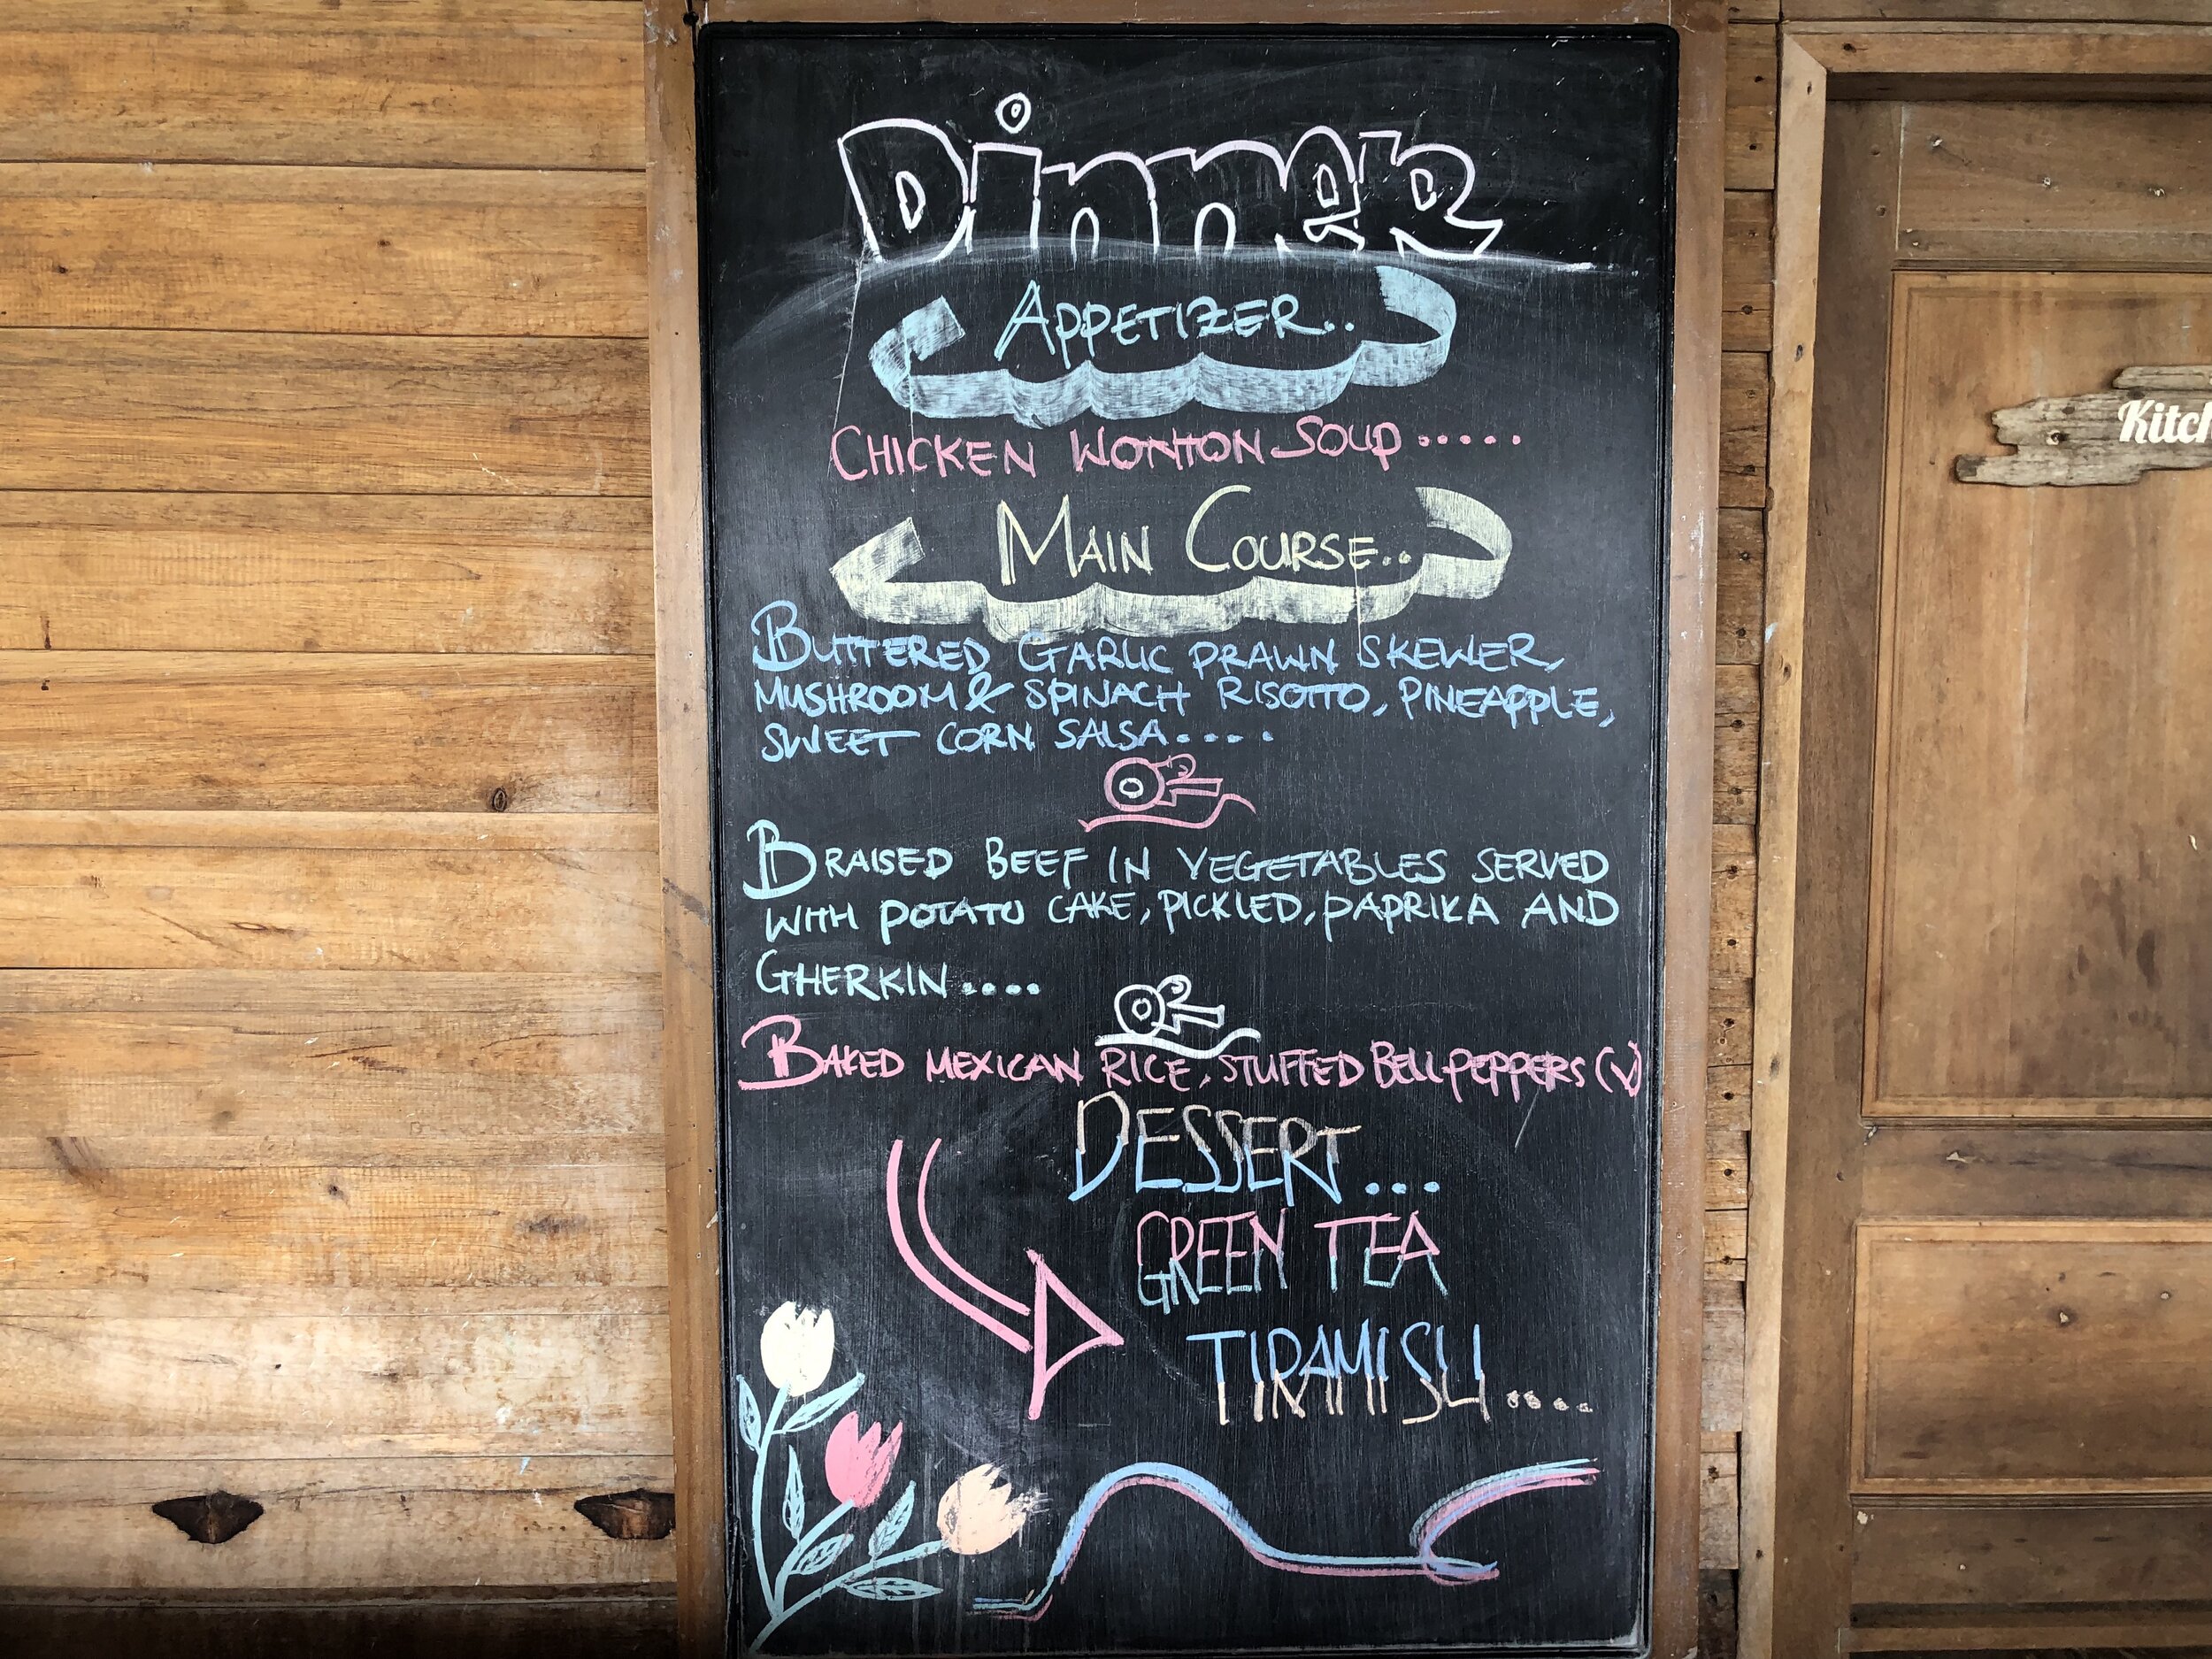 Dinner
APPETIZER..
CHICKEN WONTON SOUP.....
MAIN COURSE..
BUTTERED GARLIC PRAWN SKEWER,
MUSHROOM & SPINACH RISOTTO, PINEAPPLE,
SWEET CORN SALSA....
BRAISED BEEF IN VEGETABLES SERVED
WITH POTATO CAKE, PICKLED, PAPRIKA AND
GHERKIN....
BAKED MEXICAN RICE, STUFFED BELL PEPPERS (V)
DESSERT...
GREEN TEA
TIRAMISU....
Kitch